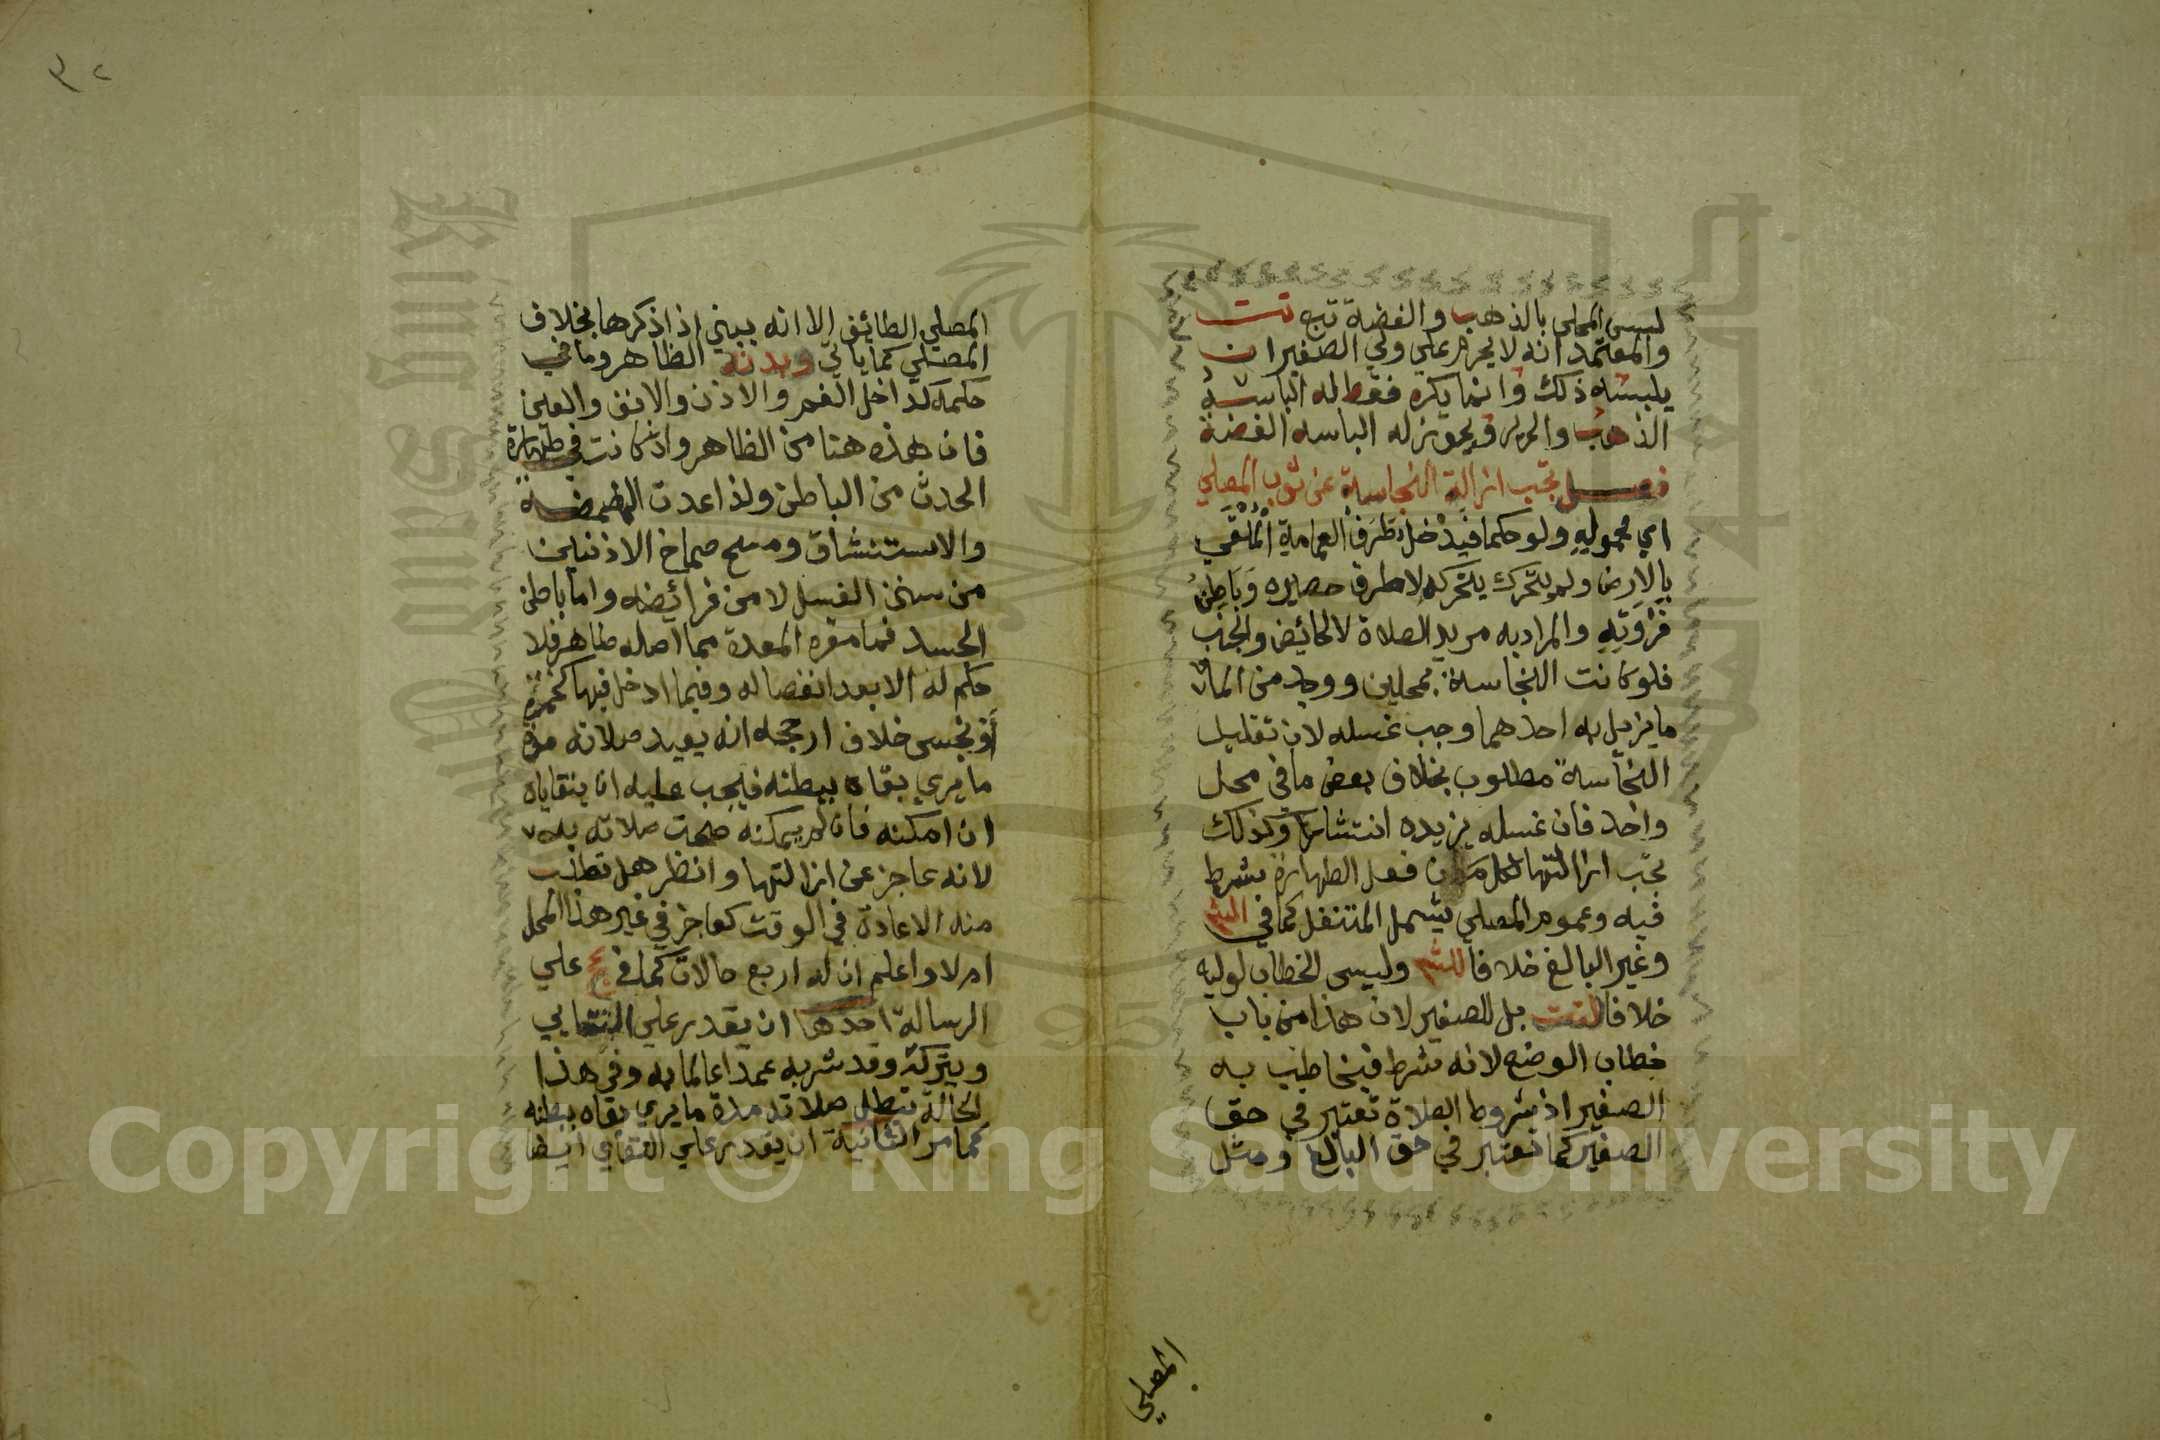 لبسي المحلي بالذهب والفضة تبه تت
والمعتمد انه لا يحرم علي ولي الصغير ان
يلبسه ذلك وانما يكره فقط له الباسه
الذهب والحرير ويجوز له الباسه الفضة
فصل تجب ازالة النجاسة عن ثوب المصلي
اي محموله ولو حكما فيدخل طرف العمامة الملقي
بالارض ولو يتحرك بتحركه لا طرف حصيره وباطن
فروته والمراد به مريد الصلاة لا الحائض والجنب
فلو كانت النجاسة بمحلين ووجد من الماء
ما يزيل به احدهما وجب غسله لان تقليل
النجاسة مطلوب بخلاف بعض ما في محل
واحد فان غسله يزيده انتشارا وكذلك
تجب ازالتها فعل الطهارة شرط
فيه وعموم المصلي يشمل المتنفل كما في الش
وغير البالغ خلافا للش وليس الخطاب لوليه
خلافا لتت بل للصغير لان هذا من باب
خطاب الوضع لانه شرط فيخاطب به
الصغير اذ شروط الصلاة تعتبر في حق
الصغير كما تعتبر في حق البالغ ومثل
المصلي
٣٢
المصلي الطائف الا انه يبني اذا ذكرها بخلاف
المصلي كما ياتي وبدنه الظاهر وما في
حكمه كداخل الفم والاذن والانف والعين
فان هذه هنا من الظاهر وان كانت في طهارة
الحدث من الباطن ولذا عدت المضمضة
والاستنشاق ومسح صماخ الاذنين
من سنن الغسل لا من فرائضه واما باطن
الجسد فما مقره المعدة مما اصله طاهر فلا
حكم له الا بعد انفصاله وفيما ادخل فيها كخمرة
او نجس خلاف ارجحه انه يعيد صلاته مدة
ما يري بقاه ببطنه فيجب عليه ان يتقاياه
ان امكنه فان لم يمكنه صحت صلاته به
لانه عاجز عن ازالتها وانظر هل تطلب
منه الاعادة في الوقت كعاجز في غير هذا المحل
ام لا واعلم ان له اربع حالات كما في عج علي
الرسالة احدها ان يقدر علي التقايي
ويتركه وقد شربه عمدا عالما به وفي هذا
الحالة تبطل صلاته مدة ما يري بقاه ببطنه
كما مر الثانية ان يقدر علي التقايي ايضا